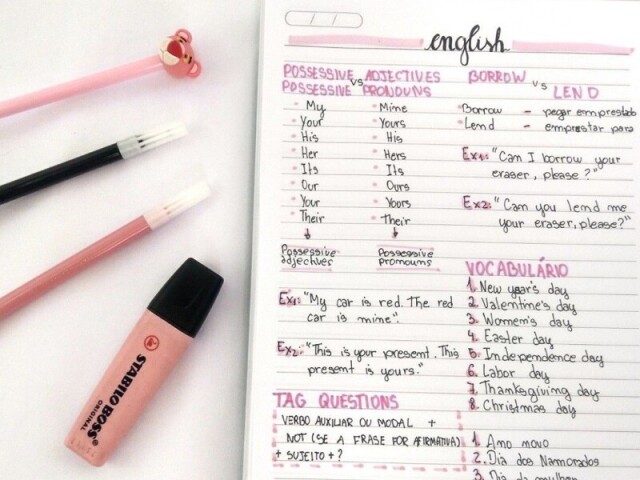 english
POSSESSIVE ADJECTIVES
VS
POSSESSIVE PRONOUNS
My Mine
Your Yours
His His
Her Hers
Its Its
Our Ours
Your Yours
Their Their
Possessive adjectives
Possessive pronouns
Ex1: "My car is red. The red
car is mine".
Ex2: "This is your present. This
present is yours."
TAG QUESTIONS
VERBO AUXILIAR OU MODAL +
NOT (SE A FRASE FOR AFIRMATIVA)
+ SUJEITO + ?
BORROW
VS
LEND
Borrow - pegar emprestado
Lend - emprestar para
Ex1: "Can I borrow your
eraser, please?"
Ex2: "Can you lend me
your eraser, please?"
VOCABULÁRIO
1. New year's day
2. Valentine's day
3. Women's day
4. Easter day
5. Independence day
6. Labor day
7. Thanksgiving day
8. Christmas day
1. Ano novo
2. Dia dos Namorados
3. Dia da mulher
STABILO BOSS
ORIGINAL